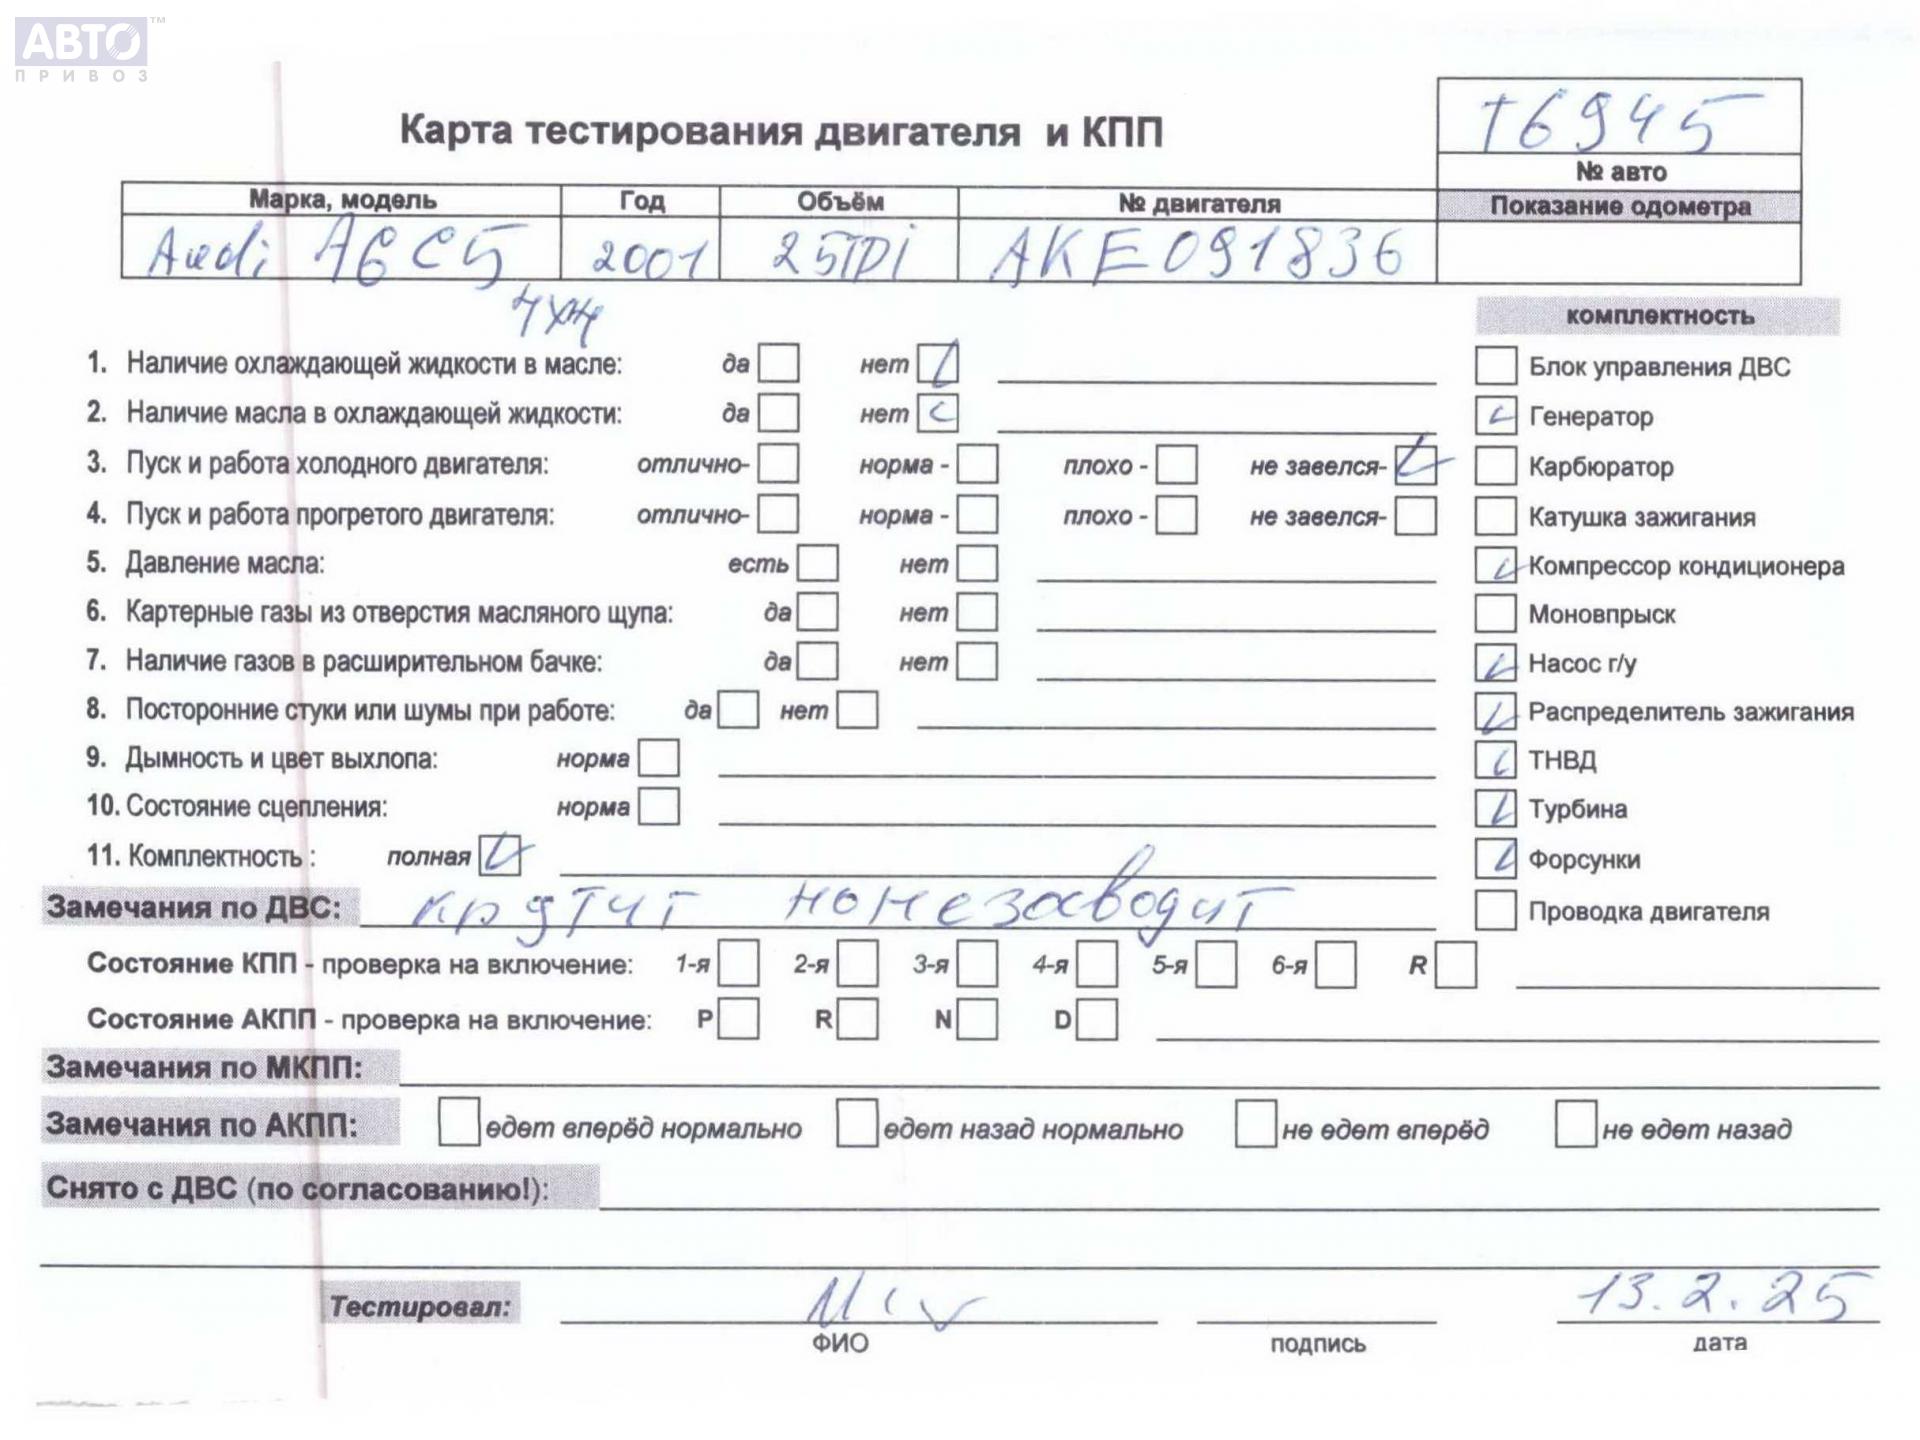 АВТО™
ПРИВОЗ
Карта тестирования двигателя и КПП
т6945
№ авто
Марка, модель Год Объём № двигателя Показание одометра
Audi A6C5 2001 25TDi AKE091836
4x4
комплектность
1. Наличие охлаждающей жидкости в масле: да нет Блок управления ДВС
2. Наличие масла в охлаждающей жидкости: да нет Генератор
3. Пуск и работа холодного двигателя: отлично- норма - плохо - не завелся- Карбюратор
4. Пуск и работа прогретого двигателя: отлично- норма - плохо - не завелся- Катушка зажигания
5. Давление масла: есть нет Компрессор кондиционера
6. Картерные газы из отверстия масляного щупа: да нет Моновпрыск
7. Наличие газов в расширительном бачке: да нет Насос г/у
8. Посторонние стуки или шумы при работе: да нет Распределитель зажигания
9. Дымность и цвет выхлопа: норма ТНВД
10. Состояние сцепления: норма Турбина
11. Комплектность : полная Форсунки
Замечания по ДВС: но незаводит Проводка двигателя
Состояние КПП - проверка на включение: 1-я 2-я 3-я 4-я 5-я 6-я R
Состояние АКПП - проверка на включение: P R N D
Замечания по МКПП:
Замечания по АКПП: едет вперёд нормально едет назад нормально не едет вперёд не едет назад
Снято с ДВС (по согласованию!):
Тестировал: 13.2.25
ФИО подпись дата